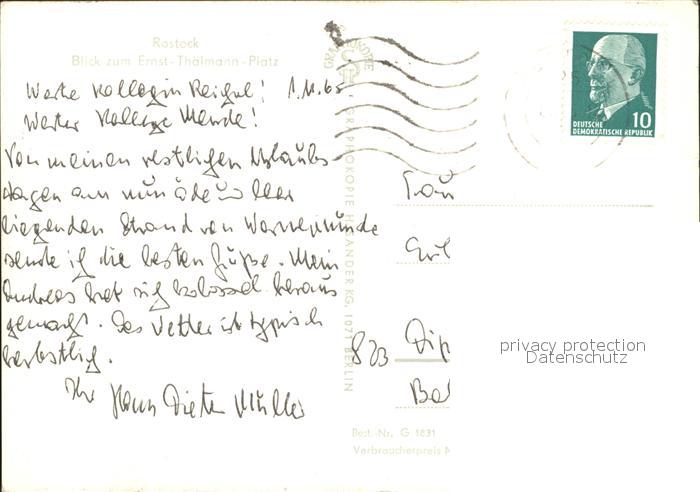 Rostock
Blick zum Ernst-Thälmann-Platz
Werte Kollegin Reigel! 1.11.65.
Werter Kollege Mende!
Von meinen restlichen Urlaubs-
tagen am nun öde u. leer
liegenden Strand von Warnemünde
sende ich die besten Grüße. Mein
Andreas hat sich kolossal heraus
gemacht. Das Wetter ist typisch
herbstlich.
Ihr Hans Dieter Müller
GRAPHOKOPIE H. SANDER KG, 1071 BERLIN
DEUTSCHE
DEMOKRATISCHE REPUBLIK
10
Dip
823
privacy protection
Datenschutz
Best.-Nr. G 1831
Verbraucherpreis